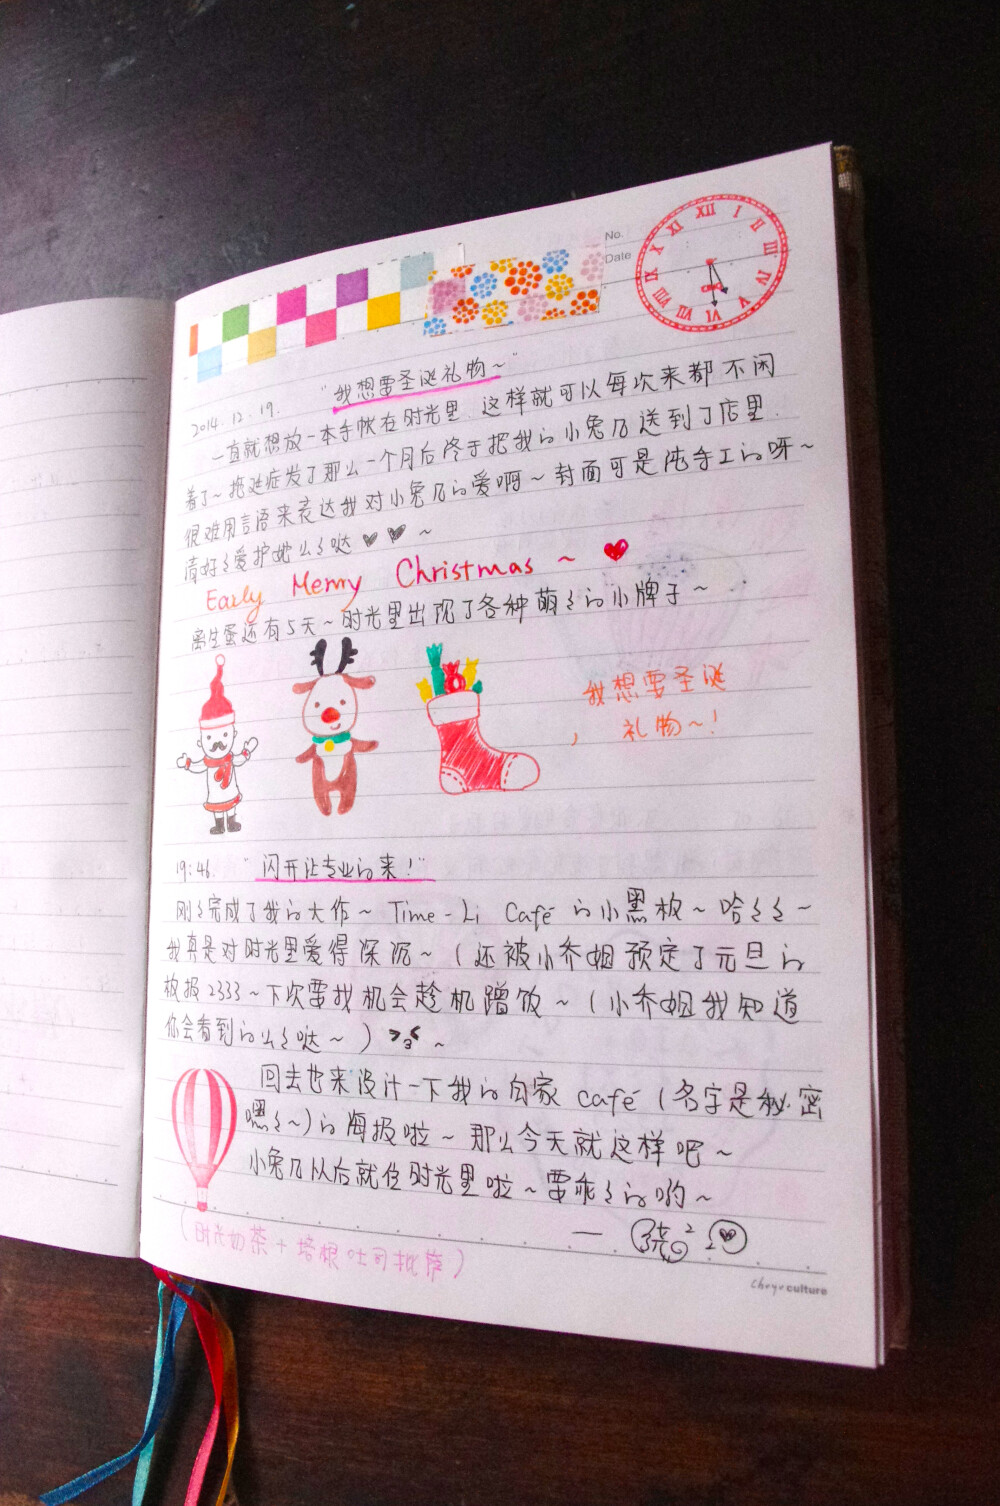 No.
Date
XII I II III IV V VI VII VIII IX X XI
"我想要圣诞礼物~"
2014.12.19.
一直就想放一本手帐在时光里.这样就可以每次来都不闲
着了~拖延症发了那么一个月后终于把我的小兔几送到了店里.
很难用言语来表达我对小兔几的爱啊~封面可是纯手工的呀~
请好好爱护她么么哒♥♥~
Early Merry Christmas ~ ♥
离生蛋还有5天~时光里出现了各种萌萌的小牌子~
我想要圣诞
礼物~!
19:46. "闪开让专业的来!"
刚刚完成了我的大作~ Time-Li Café 的小黑板~哈哈哈~
我真是对时光里爱得深沉~(还被小乔姐预定了元旦的
板报2333~下次要找机会趁机蹭饭~(小乔姐我知道
你会看到的么么哒~) >3< ~
回去也来设计一下我的自家 café (名字是秘密
嘿嘿~)的海报啦~那么今天就这样吧~
小兔几以后就住时光里啦~要乖乖的哟~
(时光奶茶+培根吐司批萨)
culture